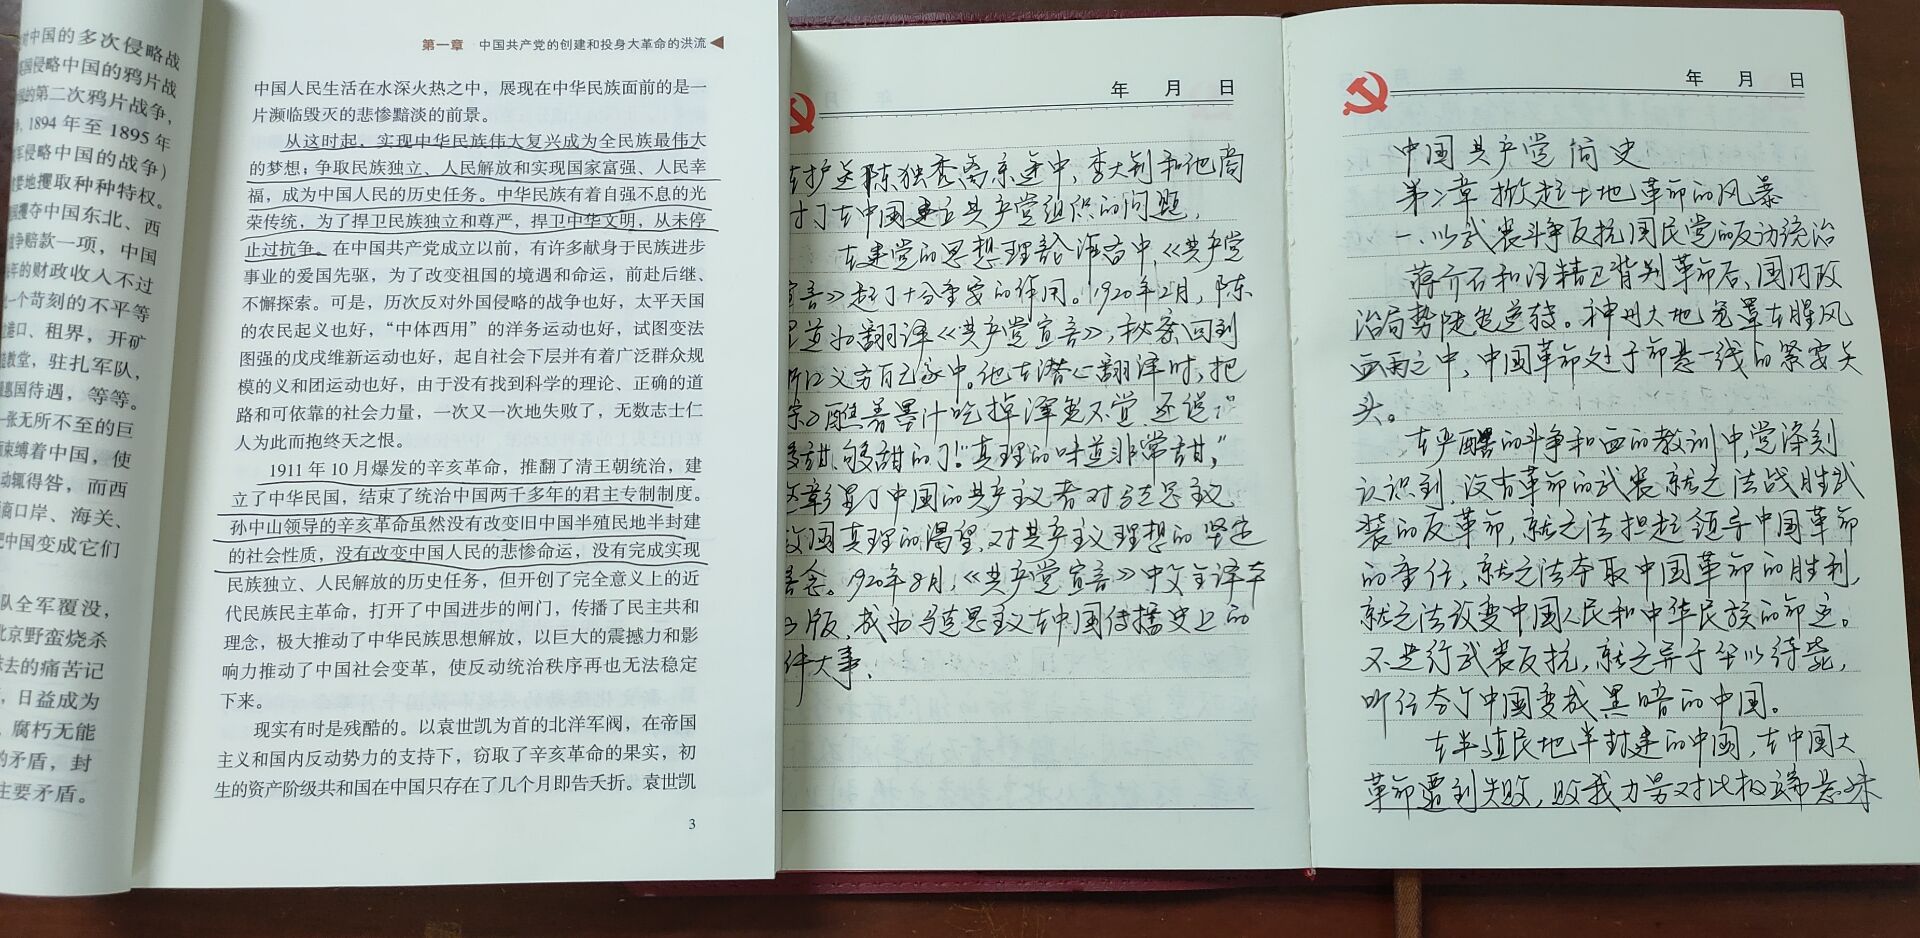 对中国的多次侵略战
国侵略中国的鸦片战
的第二次鸦片战争,
1894年至1895年
军侵略中国的战争)
地攫取种种特权。
攫夺中国东北、西
争赔款一项,中国
年的财政收入不过
一个苛刻的不平等
港口、租界,开矿
教堂,驻扎军队,
惠国待遇,等等。
张无所不至的巨
束缚着中国,使
动辄得咎,而西
商口岸、海关、
把中国变成它们
队全军覆没,
北京野蛮烧杀
去的痛苦记
,日益成为
腐朽无能
的矛盾,封
主要矛盾。
第一章 中国共产党的创建和投身大革命的洪流
中国人民生活在水深火热之中,展现在中华民族面前的是一
片濒临毁灭的悲惨黯淡的前景。
从这时起,实现中华民族伟大复兴成为全民族最伟大
的梦想;争取民族独立、人民解放和实现国家富强、人民幸
福,成为中国人民的历史任务。中华民族有着自强不息的光
荣传统,为了捍卫民族独立和尊严,捍卫中华文明,从未停
止过抗争。在中国共产党成立以前,有许多献身于民族进步
事业的爱国先驱,为了改变祖国的境遇和命运,前赴后继、
不懈探索。可是,历次反对外国侵略的战争也好,太平天国
的农民起义也好,“中体西用”的洋务运动也好,试图变法
图强的戊戌维新运动也好,起自社会下层并有着广泛群众规
模的义和团运动也好,由于没有找到科学的理论、正确的道
路和可依靠的社会力量,一次又一次地失败了,无数志士仁
人为此而抱终天之恨。
1911年10月爆发的辛亥革命,推翻了清王朝统治,建
立了中华民国,结束了统治中国两千多年的君主专制制度。
孙中山领导的辛亥革命虽然没有改变旧中国半殖民地半封建
的社会性质,没有改变中国人民的悲惨命运,没有完成实现
民族独立、人民解放的历史任务,但开创了完全意义上的近
代民族民主革命,打开了中国进步的闸门,传播了民主共和
理念,极大推动了中华民族思想解放,以巨大的震撼力和影
响力推动了中国社会变革,使反动统治秩序再也无法稳定
下来。
现实有时是残酷的。以袁世凯为首的北洋军阀,在帝国
主义和国内反动势力的支持下,窃取了辛亥革命的果实,初
生的资产阶级共和国在中国只存在了几个月即告夭折。袁世凯
3
年 月 日
在护送陈独秀离京途中,李大钊和他商
讨了在中国建立共产党组织的问题。
在建党的思想理论准备中,《共产党
宣言》起了十分重要的作用。1920年2月,陈
望道为翻译《共产党宣言》,秘密回到
浙江义乌自己家中。他在潜心翻译时,把
粽子醮着墨汁吃掉浑然不觉,还说:“
够甜,够甜的了。”真理的味道非常甜,
这彰显了中国的共产主义者对马克思主义
救国真理的渴望,对共产主义理想的坚定
信念。1920年8月,《共产党宣言》中文全译本
出版,成为马克思主义在中国传播史上的
件大事。
年 月 日
中国共产党简史
第二章 掀起土地革命的风暴
一、以武装斗争反抗国民党的反动统治
蒋介石和汪精卫背判革命后,国内政
治局势陡然逆转。神州大地笼罩在腥风
血雨之中,中国革命处于命悬一线的紧要关
头。
在严酷的斗争和血的教训中,党深刻
认识到,没有革命的武装就无法战胜武
装的反革命,就无法担起领导中国革命
的重任,就无法夺取中国革命的胜利,
就无法改变中国人民和中华民族的命运。
不进行武装反抗,就无异于坐以待毙,
听任整个中国变成黑暗的中国。
在半殖民地半封建的中国,在中国大
革命遭到失败,敌我力量对比极端悬殊